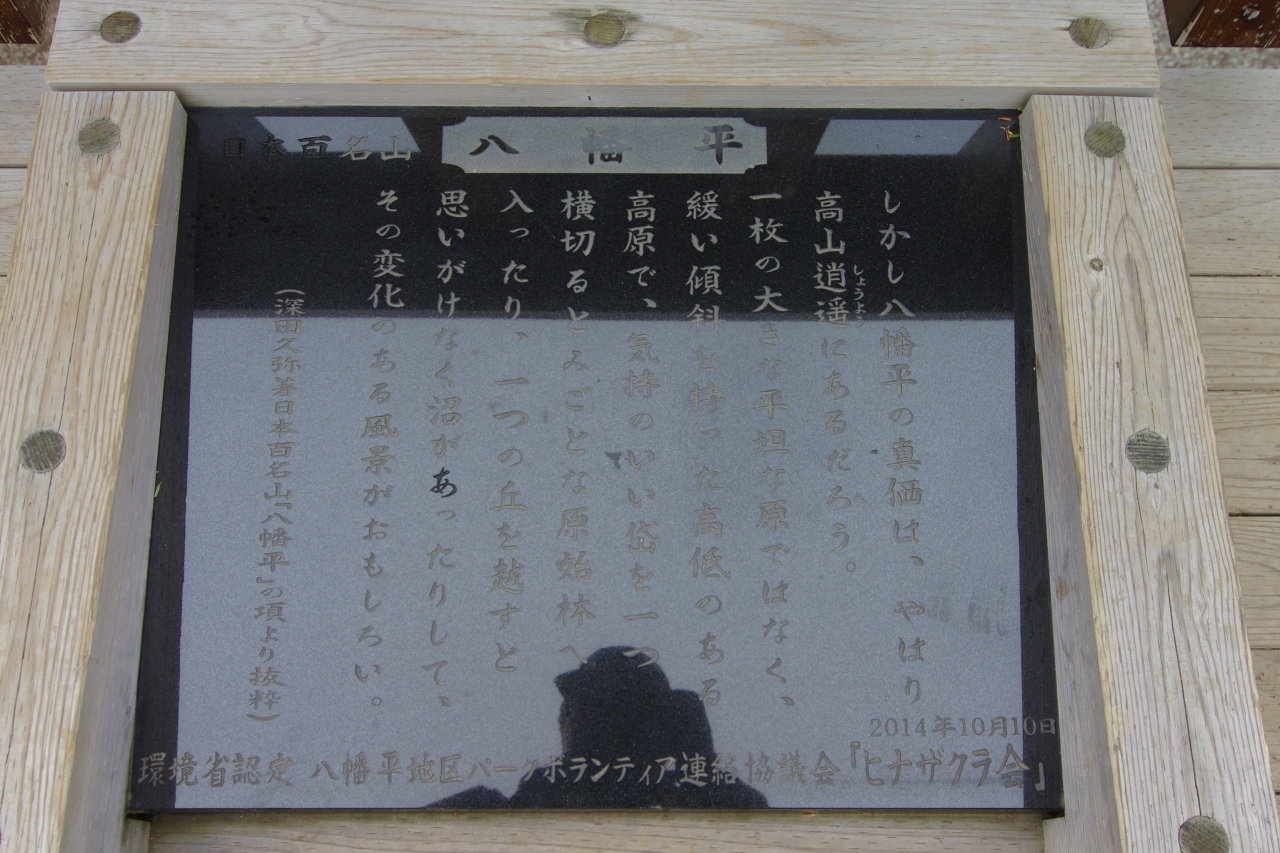 日本百名山 八幡平
しかし八幡平の真価は、やはり
高山逍遥にあるだろう。
しょうよう
一枚の大きな平坦な原ではなく、
緩い傾斜を持った高低のある
高原で、気持のいい岱を一つ
横切るとみごとな原始林へ
入ったり、一つの丘を越すと
思いがけなく沼があったりして、
その変化のある風景がおもしろい。
(深田久弥著日本百名山「八幡平」の項より抜粋)
2014年10月10日
環境省認定 八幡平地区パークボランティア連絡協議会「ヒナザクラ会」